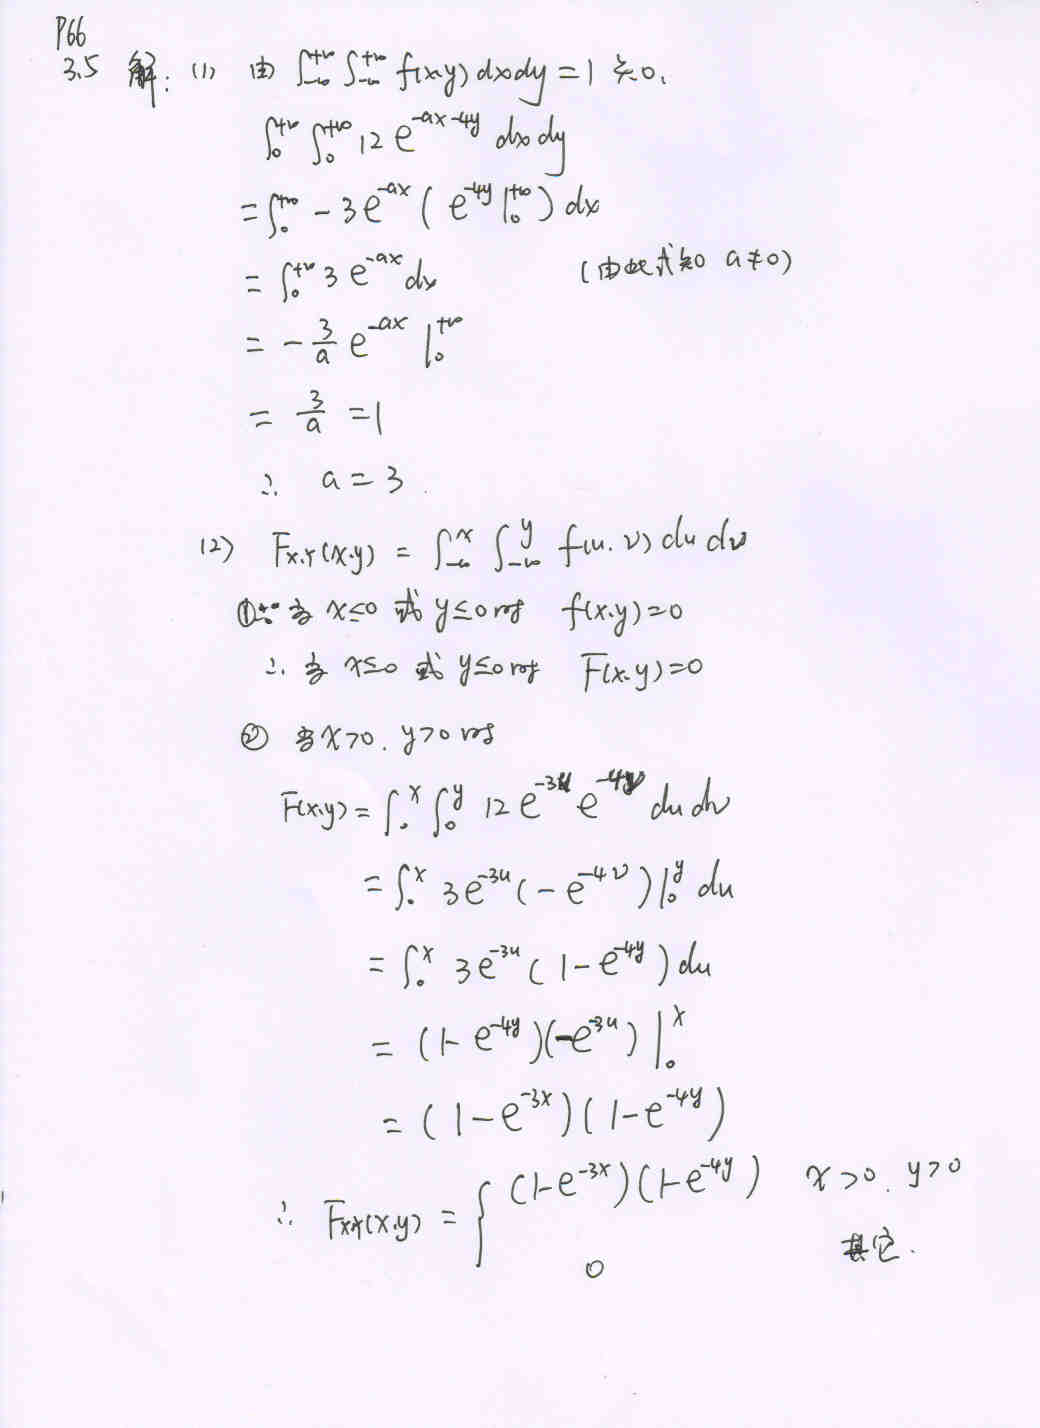 P66
3.5 解: (1) 由 ∫_{-∞}^{+∞} ∫_{-∞}^{+∞} f(x,y) dxdy = 1 知,
∫_0^{+∞} ∫_0^{+∞} 12 e^{-ax-4y} dxdy
= ∫_0^{+∞} -3e^{-ax} ( e^{-4y} |_0^{+∞} ) dx
= ∫_0^{+∞} 3 e^{-ax} dx (由此式知 a≠0)
= -\frac{3}{a} e^{-ax} |_0^{+∞}
= \frac{3}{a} = 1
∴ a = 3.
(2) F_{X,Y}(x,y) = ∫_{-∞}^{x} ∫_{-∞}^{y} f(u,v) du dv
① ∵ 当 x≤0 或 y≤0 时 f(x,y)=0
∴ 当 x≤0 或 y≤0 时 F(x,y)=0
② 当 x>0, y>0 时
F(x,y) = ∫_0^x ∫_0^y 12 e^{-3u} e^{-4v} du dv
= ∫_0^x 3e^{-3u} (-e^{-4v}) |_0^y du
= ∫_0^x 3e^{-3u} (1-e^{-4y}) du
= (1-e^{-4y})(-e^{-3u}) |_0^x
= (1-e^{-3x})(1-e^{-4y})
∴ F_{X,Y}(x,y) = { (1-e^{-3x})(1-e^{-4y}) x>0, y>0
0 其它.